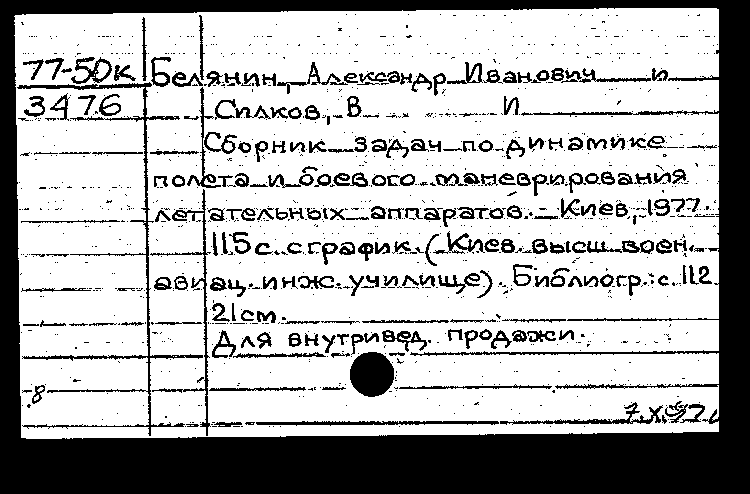 77-50к Белянин, Александр Иванович и
3476 Силков, В И
Сборник задач по динамике
полета и боевого маневрирования
летательных аппаратов. - Киев, 1977.
115 с. с график. (Киев. высш. воен.
авиац. инж. училище). Библиогр.: с. 112
21 см.
Для внутривед. продажи.
8
7.X.